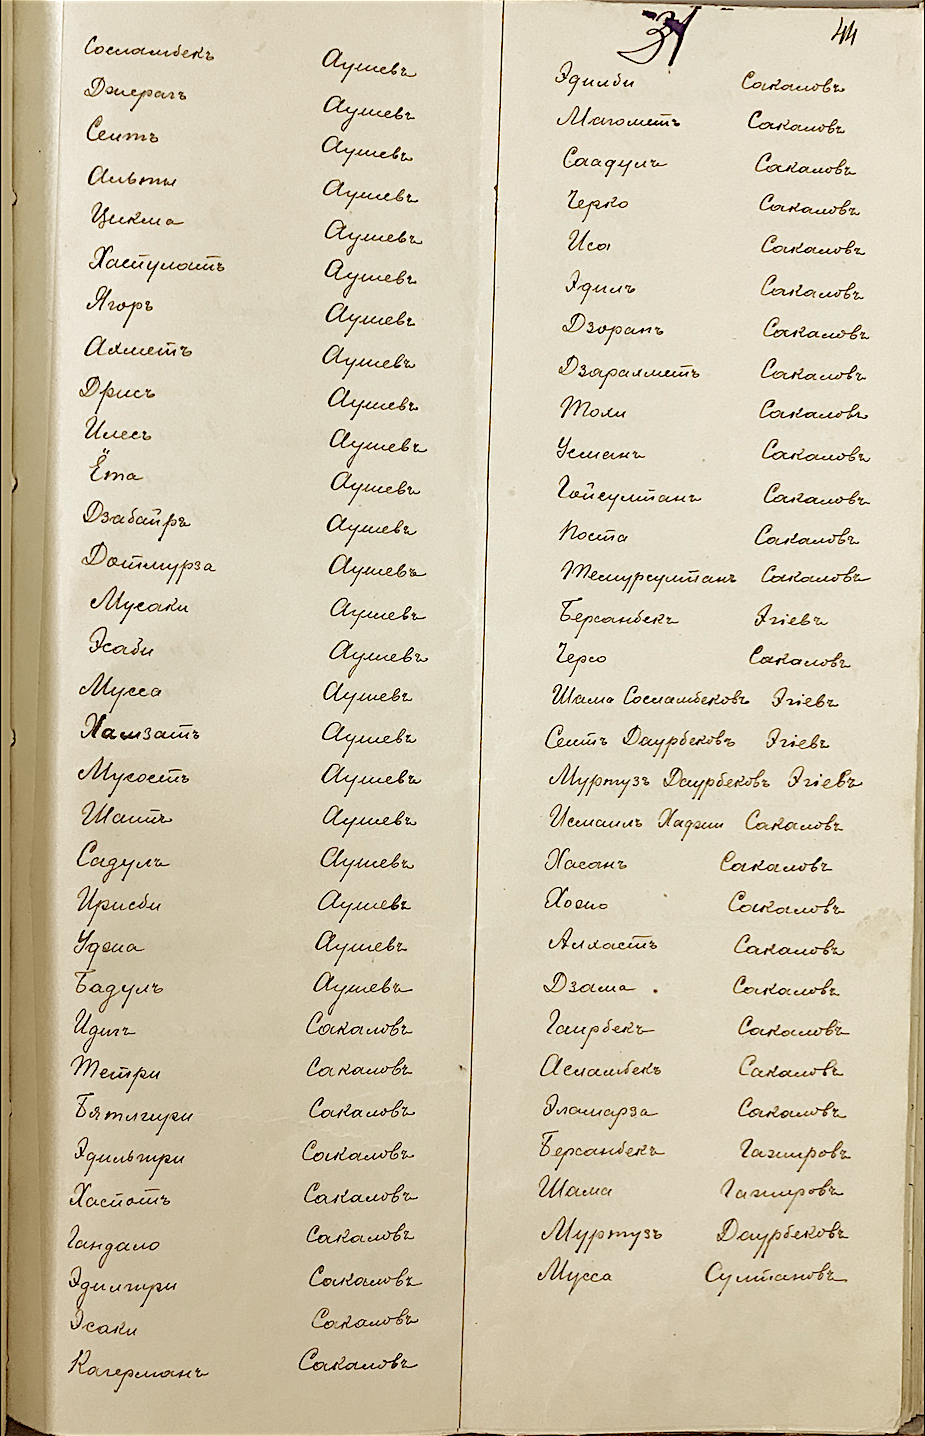 31 44
Сосламбекъ Аушевъ
Джерагъ Аушевъ
Сеитъ Аушевъ
Альты Аушевъ
Цикма Аушевъ
Хаспулатъ Аушевъ
Ягоръ Аушевъ
Ахметъ Аушевъ
Дрисъ Аушевъ
Илесъ Аушевъ
Ёта Аушевъ
Дзабаиръ Аушевъ
Дотмурза Аушевъ
Мусаки Аушевъ
Эсаби Аушевъ
Мусса Аушевъ
Хамзатъ Аушевъ
Мусостъ Аушевъ
Шаитъ Аушевъ
Садулъ Аушевъ
Ирисби Аушевъ
Аушевъ
Бадулъ Аушевъ
Идигъ Сакаловъ
Тетри Сакаловъ
Бятлгири Сакаловъ
Эдильгири Сакаловъ
Хаспотъ Сакаловъ
Гандало Сакаловъ
Эдилгири Сакаловъ
Эсаки Сакаловъ
Кагерманъ Сакаловъ
Эдилби Сакаловъ
Магометъ Сакаловъ
Саадулъ Сакаловъ
Черко Сакаловъ
Иса Сакаловъ
Эдилъ Сакаловъ
Дзоранъ Сакаловъ
Дзарахметъ Сакаловъ
Толи Сакаловъ
Усманъ Сакаловъ
Гойсултанъ Сакаловъ
Поста Сакаловъ
Темурсултанъ Сакаловъ
Берсанбекъ Эгіевъ
Черсо Сакаловъ
Шама Сосламбековъ Эгіевъ
Сеитъ Даурбековъ Эгіевъ
Муртузъ Даурбековъ Эгіевъ
Исмаилъ Хаджи Сакаловъ
Хасанъ Сакаловъ
Сакаловъ
Алхастъ Сакаловъ
Дзама . Сакаловъ
Гаирбекъ Сакаловъ
Асламбекъ Сакаловъ
Эламарза Сакаловъ
Берсанбекъ Гагировъ
Шама Гагировъ
Муртузъ Даурбековъ
Мусса Султановъ